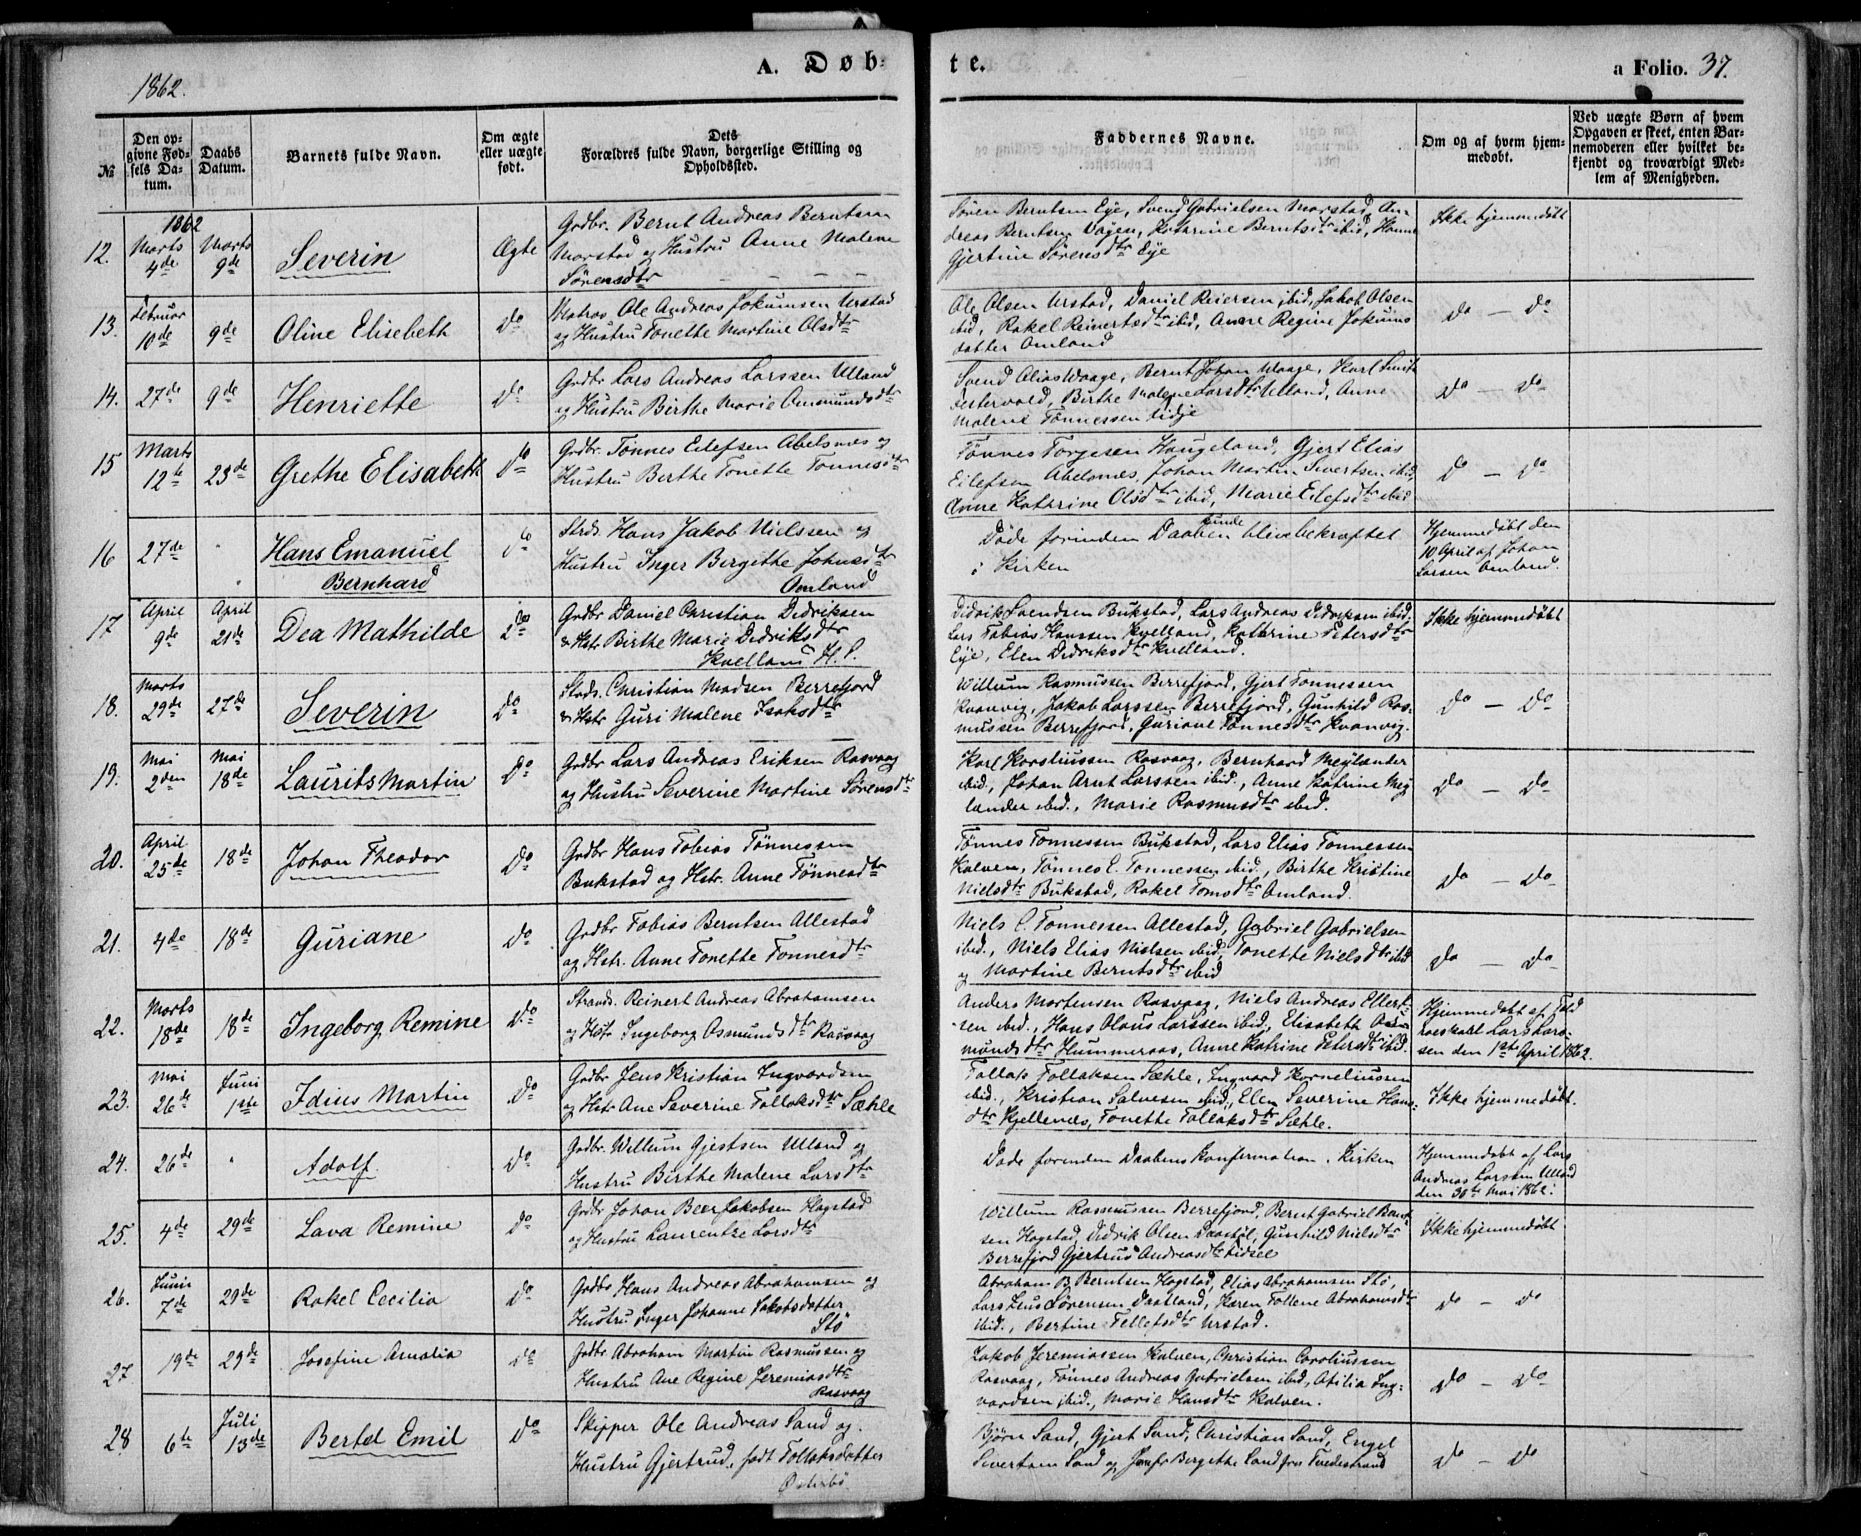 1862.
A. Døb-
te.
a Folio. 37.
№
Den op-
givne Fød-
sels Da-
tum.
Daabs
Datum.
Barnets fulde Navn.
Om ægte
eller uægte
født.
Dets
Forældres fulde Navn, borgerlige Stilling og
Opholdssted.
Faddernes Navne.
Om og af hvem hjem-
medøbt.
Ved uægte Børn af hvem
Opgaven er skeet, enten Bar-
nemoderen eller hvilket be-
kjendt og troværdigt Med-
lem af Menigheden.
1862
12.
Marts
4de
Marts
9de
Severin
Ægte
Grdbr. Bernt Andreas Berntsen
Marstad og Hustru Anne Malene
Sørensdtr
Søren Berntsen Eye, Svend Gabrielsen Marstad, An-
dreas Berntsen Vågen, Kathrine Berntsdtr ibid, Hanne
Gjertine Sørensdtr Eye
Ikke hjemmedøbt
13.
Februar
10de
9de
Oline Elisebeth
Do
Matros Ole Andreas Jokumsen Urstad
og Hustru Tonette Martine Olsdtr
Ole Olsen Urstad, Daniel Reiersen ibid, Jakob Olsen
ibid, Rakel Reinertsdtr ibid, Anne Regine Jokums
datter Omland
Do — Do
14.
27de
9de
Henriette
Do
Grdbr Lars Andreas Larssen Ulland
og Hustru Birthe Marie Amundsdtr
Svend Alias Waage, Bernt Johan Waage, Karl
Birthe Malene Larsdtr Ulland, Anne
Malene Tønnessen
Do — Do
15
Marts
12te
23de
Grethe Elisabeth
Do
Grdbr. Tønnes Eilefsen Abelsnes og
Hustru Berthe Tonette Tønnesdtr
Tønnes Torgesen Haugeland, Gjert Elias
Eilefsen Abelsnes, Johan Martin Sivertsen ibid,
Anne Kathrine Olsdtr ibid, Marie Eilefsdtr ibid
Do — Do
16
27de
"
Hans Emanuel
Bernhard
Do
Strds. Hans Jakob Nielssen og
Hustru Inger Bergithe Johnsdtr
Omland
Døde forinden Daaben kunde blive bekræftet
i Kirken
Hjemmedøbt den
10 April af Johan
Larsen Omland.
17
April
9de
April
21de
Dea Mathilde
Do
Grdbr Daniel Christian Didriksen
& Hstr Birthe Marie Didriksdtr
Kvelland H. S.
Didrik Svendsen Bukstad, Lars Andreas Didriksen ibid,
Lars Tobias Hanssen Kvelland, Kathrine Petersdtr
Eye, Elen Didriksdtr Kvelland.
Ikke hjemmedøbt
18.
Marts
29de
27de
Severin
Do
Strds. Christian Madsen Berrefjord
& Hstr Guri Malene Isaksdtr
Willum Rasmussen Berrefjord, Gjert Tønnessen
Kvanvig, Jakob Larssen Berrefjord, Gunhild Ras-
mussen Berrefjord, Guriane Tønnesdtr Kvanvig.
Do — Do
19.
Mai
2den
Mai
18de
Laurits Martin
Do
Grdbr Lars Andreas Eriksen Rasvaag
og Hustru Severine Martine Sørensdtr
Karl Korsliussen Rasvaag, Bernhard Meylander
ibid, Johan Arnt Larssen ibid., Anne Katrine Mey
lander ibid., Marie Rasmusdtr ibid.
Do — Do
20.
April
25de
18de
Johan Theodor
Do
Grdbr Hans Tobias Tønnessen
Bukstad og Hstr. Anne Tønnesdtr
Tønnes Tønnessen Bukstad, Lars Elias Tønnessen
Kalven, Tønnes E. Tønnessen ibid., Birthe Kristine
Nielsdtr Bukstad, Rakel Tomsdtr Omland.
Do — Do
21.
4de
18de
Guriane
Do
Grdbr Tobias Berntsen Allestad
og Hstr. Anne Tonette Tønnesdtr
Niels E. Tønnessen Allestad, Gabriel Gabrielsen
ibid., Niels Elias Nielsen ibid, Tonette Nielsdtr ibid
og Martine Berntsdtr ibid
Do — Do
22.
Marts
18de
18de
Ingeborg Remine
Do
Strands. Reinert Andreas Abrahamsen
og Hstr Ingeborg Osmundsdtr Rasvaag
Anders Mortensen Rasvaag, Niels Andreas Ellert-
sen ibid., Hans Olaus Larssen ibid., Elisabeth Os-
mundsdtr Hummeraas, Anne Katrine Petersdtr ibid.
Hjemmedøbt af Fød
Lars Lars-
sen den 1ste April 1862.
23.
Mai
26de
Juni
1ste
Idius Martin
Do
Grdbr Jens Kristian Ingvardsen
og Hstr Ane Severine Tollaksdtr Sæhle
Tollak Tollaksen Sæhle, Ingvard Korneliussen
ibid., Kristian Salvesen ibid., Elen Severine Hans-
dtr Kjellenes, Tonette Tollaksdtr Sæhle.
Ikke hjemmedøbt.
24.
26de
"
Adolf
Do
Grdbr. Willum Gjertsen Ulland og
Hustru Birthe Malene Larsdtr
Døde forinden Daabens Konfirmation i Kirken
Hjemmedøbt af Lars
Andreas Larssen Ulland
den 30te Mai 1862.
25.
4de
29de
Lava Remine
Do
Grdbr Johan Beer Jakobsen Hogstad
og Hustru Laurentze Larsdtr
Willum Rasmussen Berrefjord, Bernt Gabriel Bernt-
sen Hogstad, Didrik Olsen Daastøl, Gunhild Nielsdtr
Berrefjord Gjertrud Andreasdtr Eidsel
Ikke hjemmedøbt
26.
Juni
7de
29de
Rakel Cecilia
Do
Grdbr Hans Andreas Abrahamsen og
Hustru Inger Johanne Jakobsdatter
Stø
Abraham B. Berntsen Hogstad, Elias Abrahamsen Stø,
Lars Leus Sørensen Daatland, Karen Tollene Abrahamsdtr
ibid., Bertine Tellefsdtr Urstad.
Do — Do
27
19de
29de
Josefine Amalia
Do
Grdbr Abraham Martin Rasmussen og
Hustru Ane Regine Jeremiasdtr
Rasvaag
Jakob Jeremiassen Kalven, Christian Caroliussen
Rasvaag, Tønnes Andreas Gabrielsen ibid, Otilia Ing-
vardsen ibid., Marie Hansdtr Kalven.
Do — Do
28
6te
Juli
13de
Bertel Emil
Do
Skipper Ole Andreas Sand og
Hustru Gjertrud, født Tollaksdatter
Østebø
Bjørn Sand, Gjert Sand, Christian Sand, Engel
Sivertsen Sand og Jomfr Bergithe Sand fra Tvedestrand
Do — Do